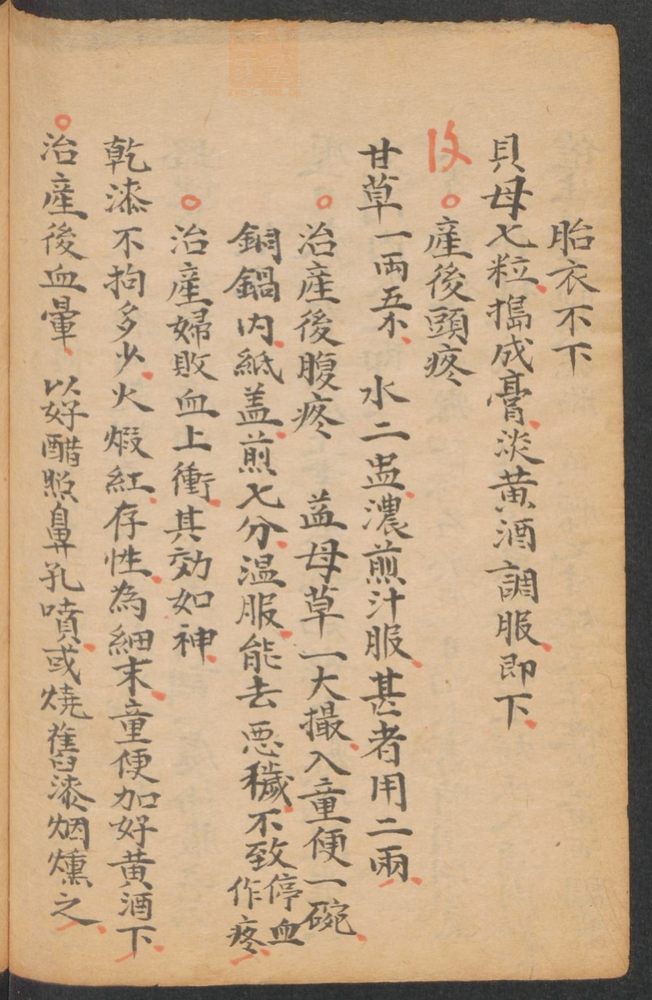 胎衣不下
貝母七粒搗成膏淡黄酒調服即下
产後頭疼
甘草一兩五小 水二盅濃煎汁服甚者用二兩
治產後腹疼 益母草一大撮入童便一碗
銅鍋内紙盖煎七分温服能去恶穢不致停血作疼
治產婦敗血上衝其効如神
乾漆不拘多少火煅紅存性為細末童便加好黄酒下
治產後血暈 以好醋照鼻孔噴或燒舊漆烟燻之